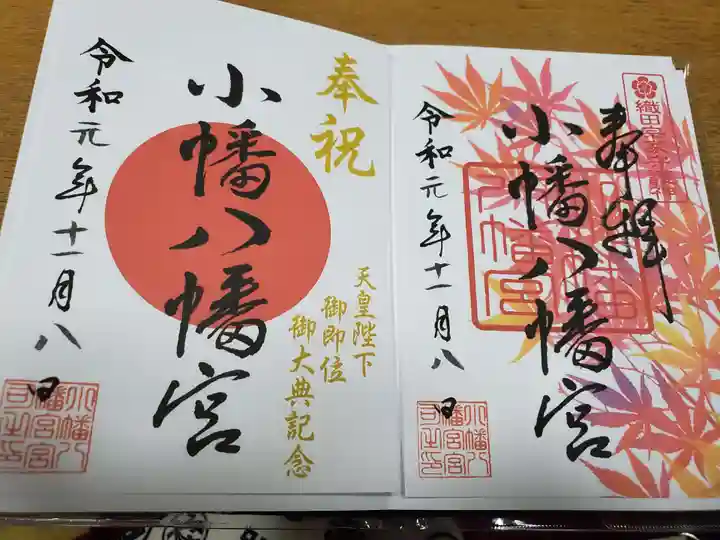 奉祝
天皇陛下
御即位
御大典記念
小幡八幡宮
令和元年十一月八日
小幡八
幡宮宮
司之印
奉拝
小幡八幡宮
令和元年十一月八日
小幡八
幡宮宮
司之印